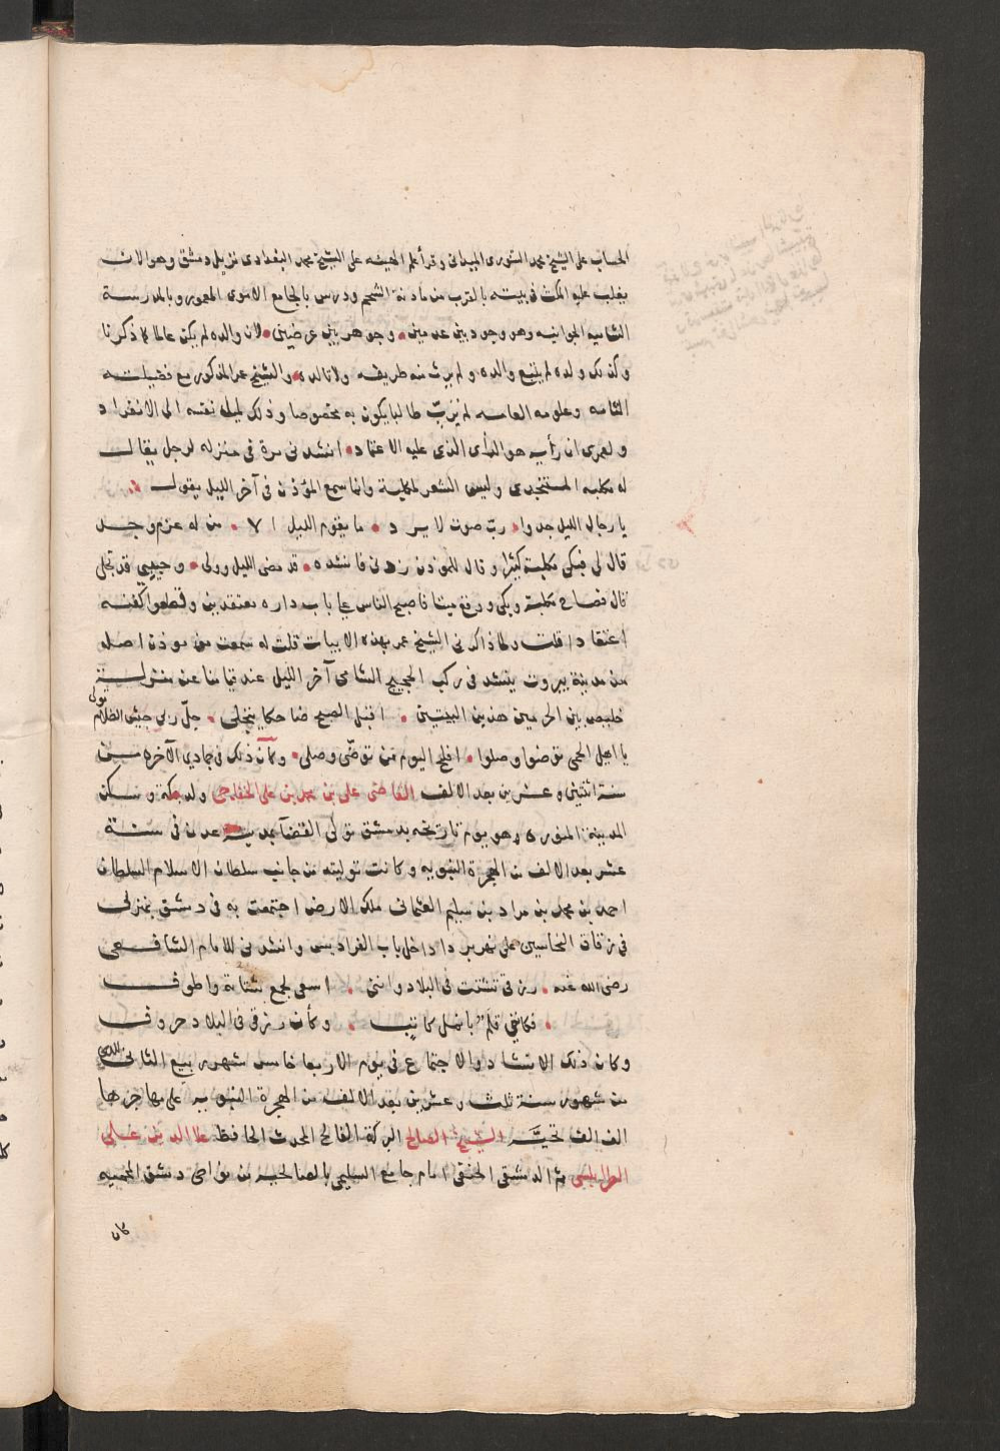 الحساب على الشيخ محمد التنورى الميدانى وقرأ علم الهيئه على الشيخ محمد البغدادى نزيل دمشق وهو الان
يغلب عليه المكث فى بيته بالقرب من مأذنة الشحم ودرس بالجامع الاموى المعمور وبالمدرسة
الشاميه الجوانيه وهو وجود بين عدمين وجوهر بين عرضين لان والده لم يكن عالما كما ذكرنا
وكذلك ولده لم يتبع والده ولم يرث منه طريفه ولا تالده والشيخ عمر المذكور مع فضيلته
التامه وعلومه العامه لم يربّ طالبا يكون به مخصوصا وذلك لميل نفسه الى الانفراد
ولعمرى ان رأيه هو الرأى الذى عليه الاعتماد انشدنى مرة فى منزله لرجل يقال
له مكلبه المستنجدى وليس الشعر لمكلبة وانما سمع المؤذن فى آخر الليل يقول
يا رجال الليل جدوا رب صوت لا يرد ما يقوم الليل الا من له عزم وجد
قال لى فبكى مكلبة كثيرا وقال للموذن زدنى فانشده قد مضى الليل وولى وحبيبى قد تجلى
قال فصاح مكلبة وبكى ووقع ميتا فاصبح الناس على باب داره معتقدين وقطعوا كفنه
اعتقادا قلت ولما ذاكرنى الشيخ عمر بهذه الابيات قلت له سمعت من موذن اصله
من مدينة بيروت ينشد فى ركب الحجيج الشامى آخر الليل عند قيامنا من منزلة
خليص بين الحرمين هذين البيتين اقبل الصبح ضاحكا يتجلى جلّ ربى جيش الظلام تولى
يا اهيل الحمى توضئوا وصلوا افلح اليوم من توضى وصلى وكان ذلك فى جمادى الآخره من
سنة اثنتين وعشرين بعد الالف القاضى على بن محمد بن على الخفاجى ولد بمكة وسكن
المدينة المنوره وهو يوم تاريخه بدمشق تولى القضا بمدينة عدن فى سنة
عشر بعد الالف من الهجرة النبويه وكانت توليته من جانب سلطان الاسلام السلطان
احمد بن محمد بن مراد بن سليم العثمانى ملك الارض اجتمعت به فى دمشق بمنزلى
فى زقاق النحاسين على نهر بردا داخل باب الفراديس وانشدنى للامام الشافعى
رضى الله عنه رزقى تشتت فى البلاد واننى اسعى لجمع شتاته واطوف
فكاننى قلم بانمل كاتب وكأن رزقى فى البلاد حروف
وكان ذلك الانشاد والاجتماع فى يوم الاربعا خامس شهر ربيع الثانى
من شهور سنة ثلث وعشرين بعد الالف من الهجرة النبويه على مهاجرها
الف الف تحيّة الشيخ الصالح البركة الفالح المحدث الحافظ علا الدين على
الطرابلسى ثم الدمشقى الحنفى امام جامع السليمى بالصالحيه من نواحى دمشق المحميه
كان